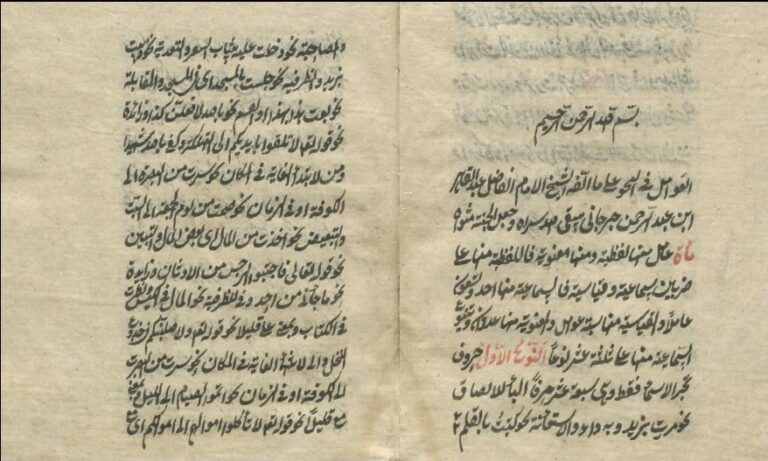 بسم الله الرحمن الرحيم
العوامل في النحو على ما الفه الشيخ الامام الفاضل عبد القاهر
ابن عبد الرحمن جرجاني سقى الله سراه وجعل الجنة مثواه
مأة عامل منها لفظية ومنها معنوية فاللفظية منها على
ضربين سماعية وقياسية فالسماعية منها احد وتسعون
عاملا والقياسية منها سبعة عوامل والمعنوية منها عددان وتتنوع
السماعية منها على ثلثة عشر نوعا النوع الاول حروف
تجر الاسم فقط وهي سبعة عشر حرفا الباء للالصاق
نحو مررت بزيد وبه داء والاستعانة نحو كتبت بالقلم
والمصاحبة نحو دخلت عليه بثياب السفر والتعدية نحو ذهبت
بزيد والظرفية نحو جلست بالمسجد اى في المسجد والمقابلة
نحو بعت هذا بهذا والقسم نحو بالله لافعلن كذا وزائدة
نحو قوله تعالى لا تلقوا بايديكم الى التهلكة وكفى بالله شهيدا
ومن لابتداء الغاية في المكان نحو سرت من البصرة الى
الكوفة او في الزمان نحو صمت من يوم الجمعة الى السبت
والتبعيض نحو اخذت من المال اى بعض المال والتبيين
نحو قوله تعالى فاجتنبوا الرجس من الاوثان وزايدة
نحو ما جاءني من احد وفي للظرفية نحو المال في الكيس ونظرت
في الكتاب وبمعنى على قليلا نحو قوله تعالى ولاصلبنكم في جذوع
النخل والى لانتهاء الغاية في المكان نحو سرت من البصرة
الى الكوفة او في الزمان نحو اتموا الصيام الى الليل وبمعنى
مع قليلا نحو قوله تعالى لا تأكلوا اموالهم الى اموالكم اى